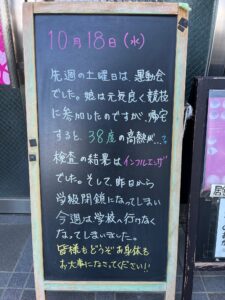 10月18日(水)
先週の土曜日は、運動会
でした。娘は元気良く競技
に参加したのですが、帰宅
すると、38度の高熱が…?
検査の結果はインフルエンザ
でした。そして、昨日から
学級閉鎖になってしまい
今週は学校へ行けなく
なってしまいました。
皆様もどうぞお身体も
お大事になさってください!